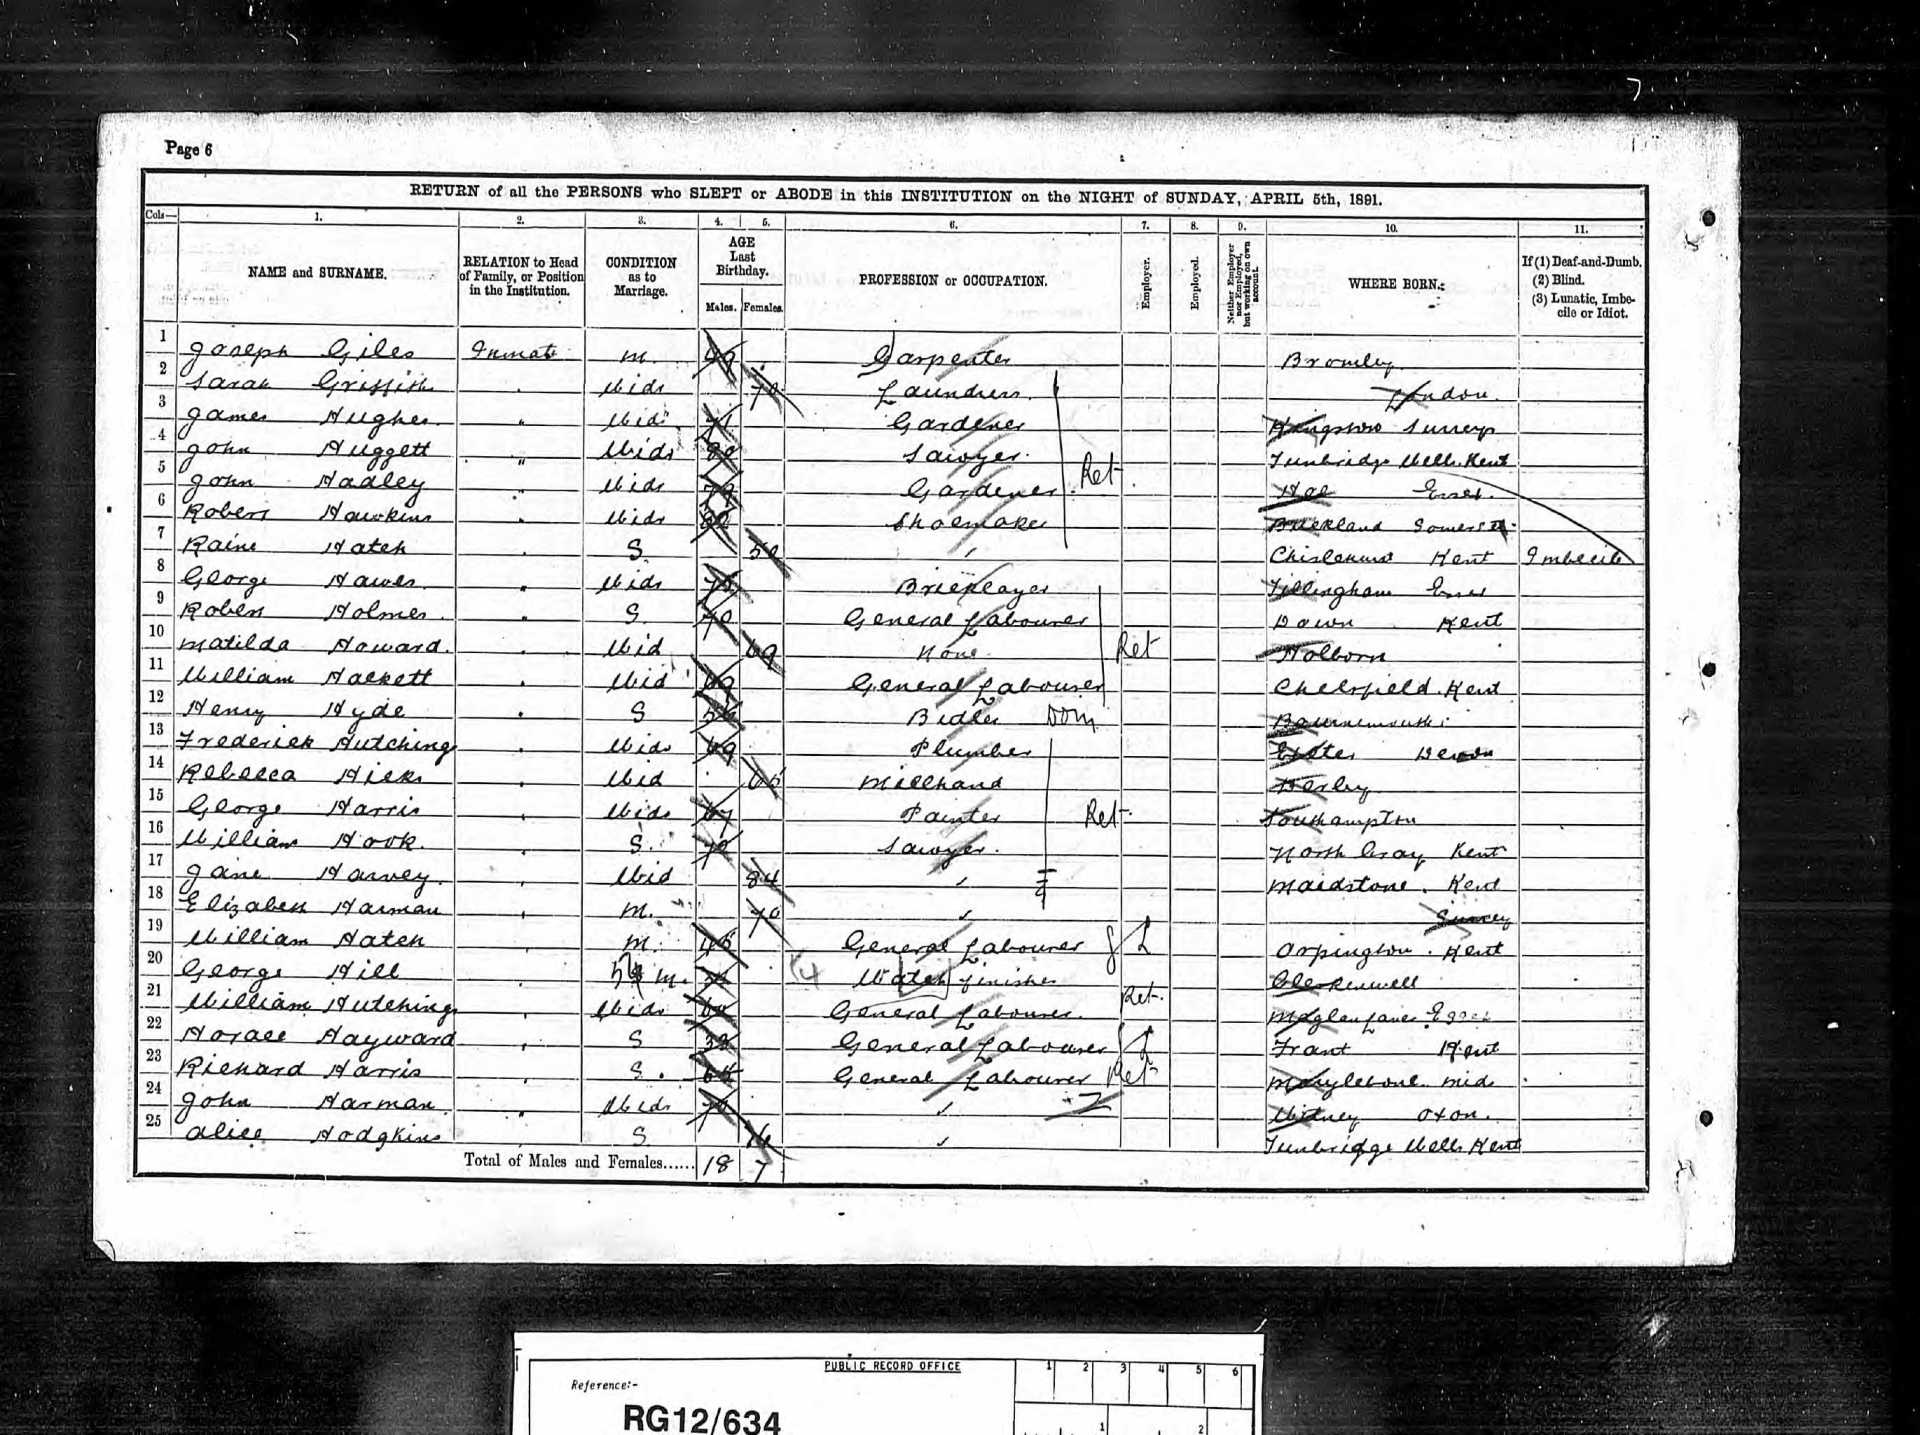 7
Page 6
RETURN of all the PERSONS who SLEPT or ABODE in this INSTITUTION on the NIGHT of SUNDAY, APRIL 5th, 1891.
Cols— 1. 2. 3. 4. 5. 6. 7. 8. 9. 10. 11.
NAME and SURNAME. RELATION to Head of Family, or Position in the Institution. CONDITION as to Marriage. AGE Last Birthday. Males. Females. PROFESSION or OCCUPATION. Employer. Employed. Neither Employer nor Employed, but working on own account. WHERE BORN. If (1) Deaf-and-Dumb. (2) Blind. (3) Lunatic, Imbecile or Idiot.
1 Joseph Giles Inmate M. Carpenter Bromley
2 Sarah Griffith Wid 70 Laundress London
3 James Hughes Widr 71 Gardener Kingston Surrey
4 John Huggett Widr 80 Sawyer Tunbridge Wells Kent
5 John Hadley Widr 79 Gardener Ret Essex
6 Robert Hawkins Widr Shoemaker Somerset
7 Raine Hatch S 50 Chislehurst Kent Imbecile
8 George Hawes Widr 75 Bricklayer Tillingham Essex
9 Robert Holmes S 70 General Labourer Down Kent
10 Matilda Howard Wid 69 None Ret Holborn
11 William Hackett Wid 69 General Labourer Chelsfield Kent
12 Henry Hyde S 56 Butler Dom Bournemouth
13 Frederick Hutchings Widr 69 Plumber Exeter Devon
14 Rebecca Hicks Wid 65 Millhand Derby
15 George Harris Widr 67 Painter Ret Southampton
16 William Hook S. 70 Sawyer North Cray Kent
17 Jane Harvey Wid 84 Maidstone Kent
18 Elizabeth Harman M. 70 Surrey
19 William Hatch M. 45 General Labourer Orpington Kent
20 George Hill M. Watch finisher Clerkenwell
21 William Hutchings Widr General Labourer Ret Essex
22 Horace Hayward S 38 General Labourer Frant Kent
23 Richard Harris S. 65 General Labourer Ret Marylebone Mid
24 John Harman Widr 70 Witney Oxon.
25 Alice Hodgkins S 16 Tunbridge Wells Kent
Total of Males and Females...... 18 7
PUBLIC RECORD OFFICE
1 2 3 4 5 6
Reference:-
RG12/634
1 2